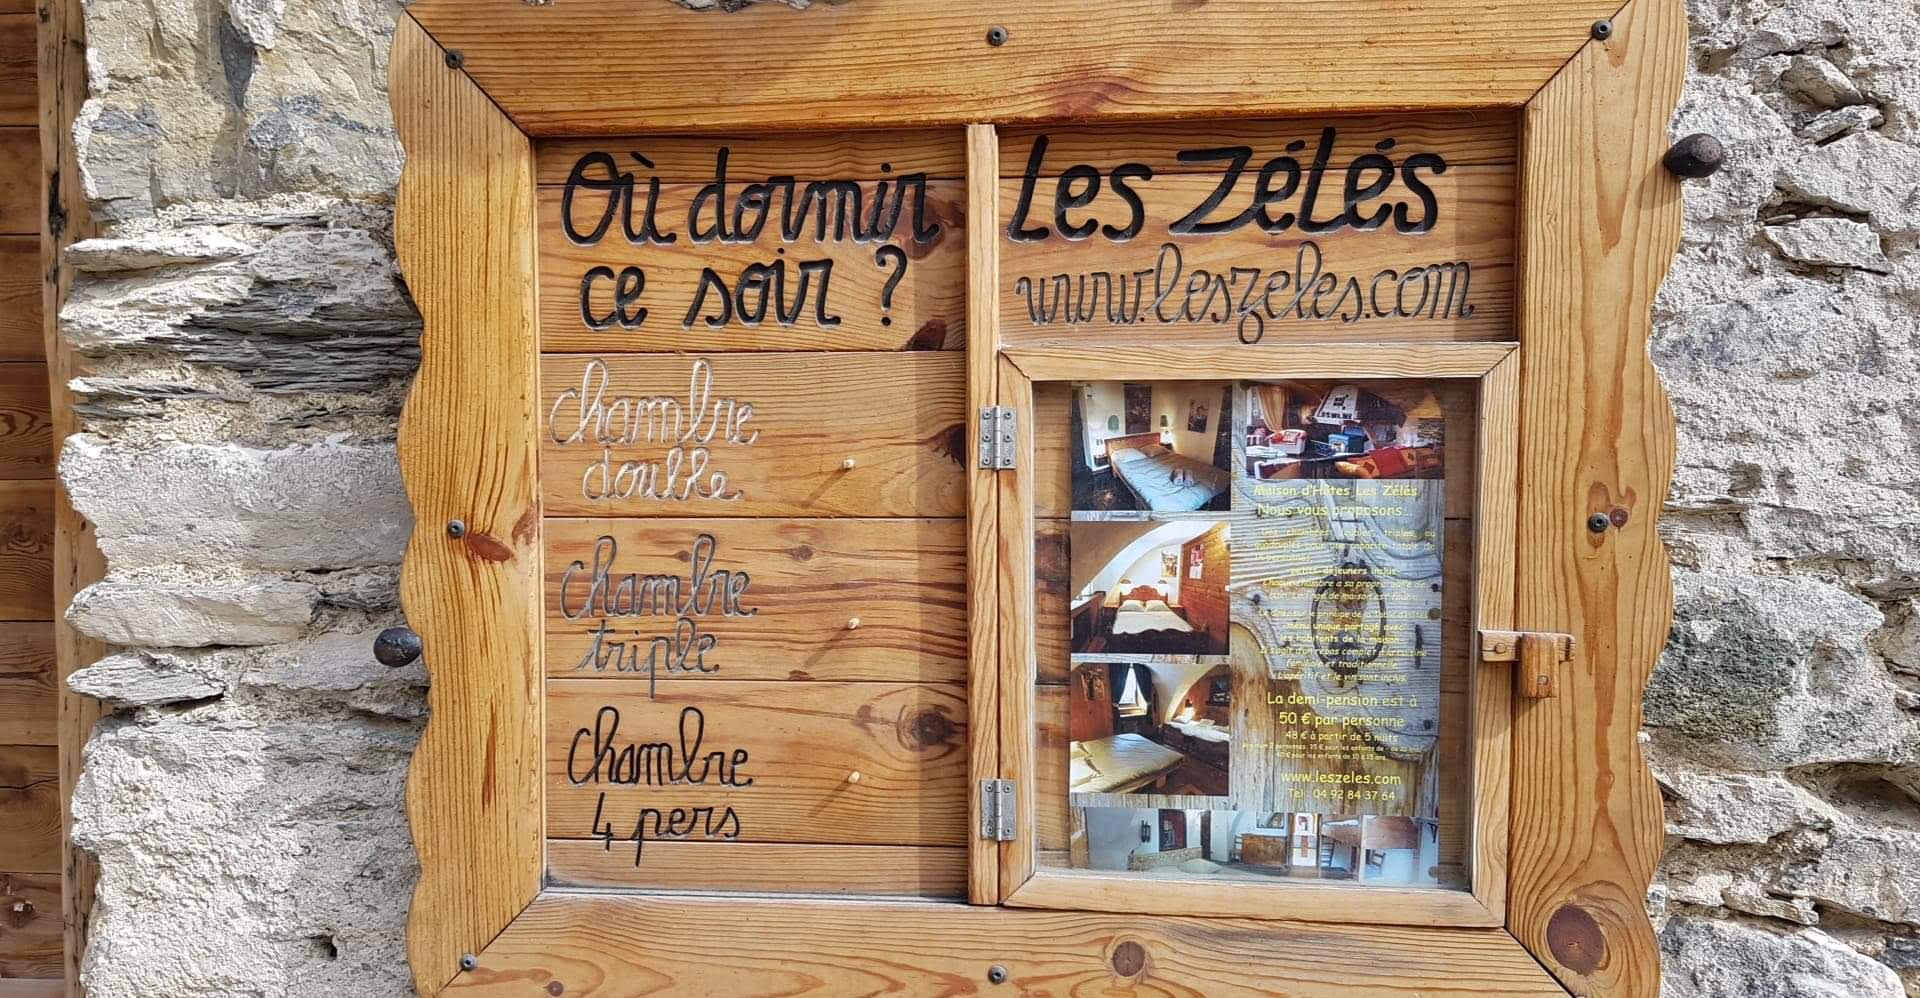 Où dormir
ce soir ?
chambre
double
chambre
triple
chambre
4 pers
Les Zélés
www.leszeles.com
Maison d'Hôtes Les Zélés
Nous vous proposons :
chambres doubles, triples, ou
capacité totale de
petits déjeuners inclus
Chaque chambre a sa propre salle de
bain. Le linge de maison est fourni.
Le dîner sur le principe de la Table d'Hôtes
menu unique partagé avec
les habitants de la maison
Il s'agit d'un repas complet à la cuisine
familiale et traditionnelle
L'apéritif et le vin sont inclus.
La demi-pension est à
50 € par personne
48 € à partir de 5 nuits
2 personnes. 35 € pour les enfants de - de 10 ans/
40 € pour les enfants de 10 à 15 ans
www.leszeles.com
Tel : 04 92 84 37 64